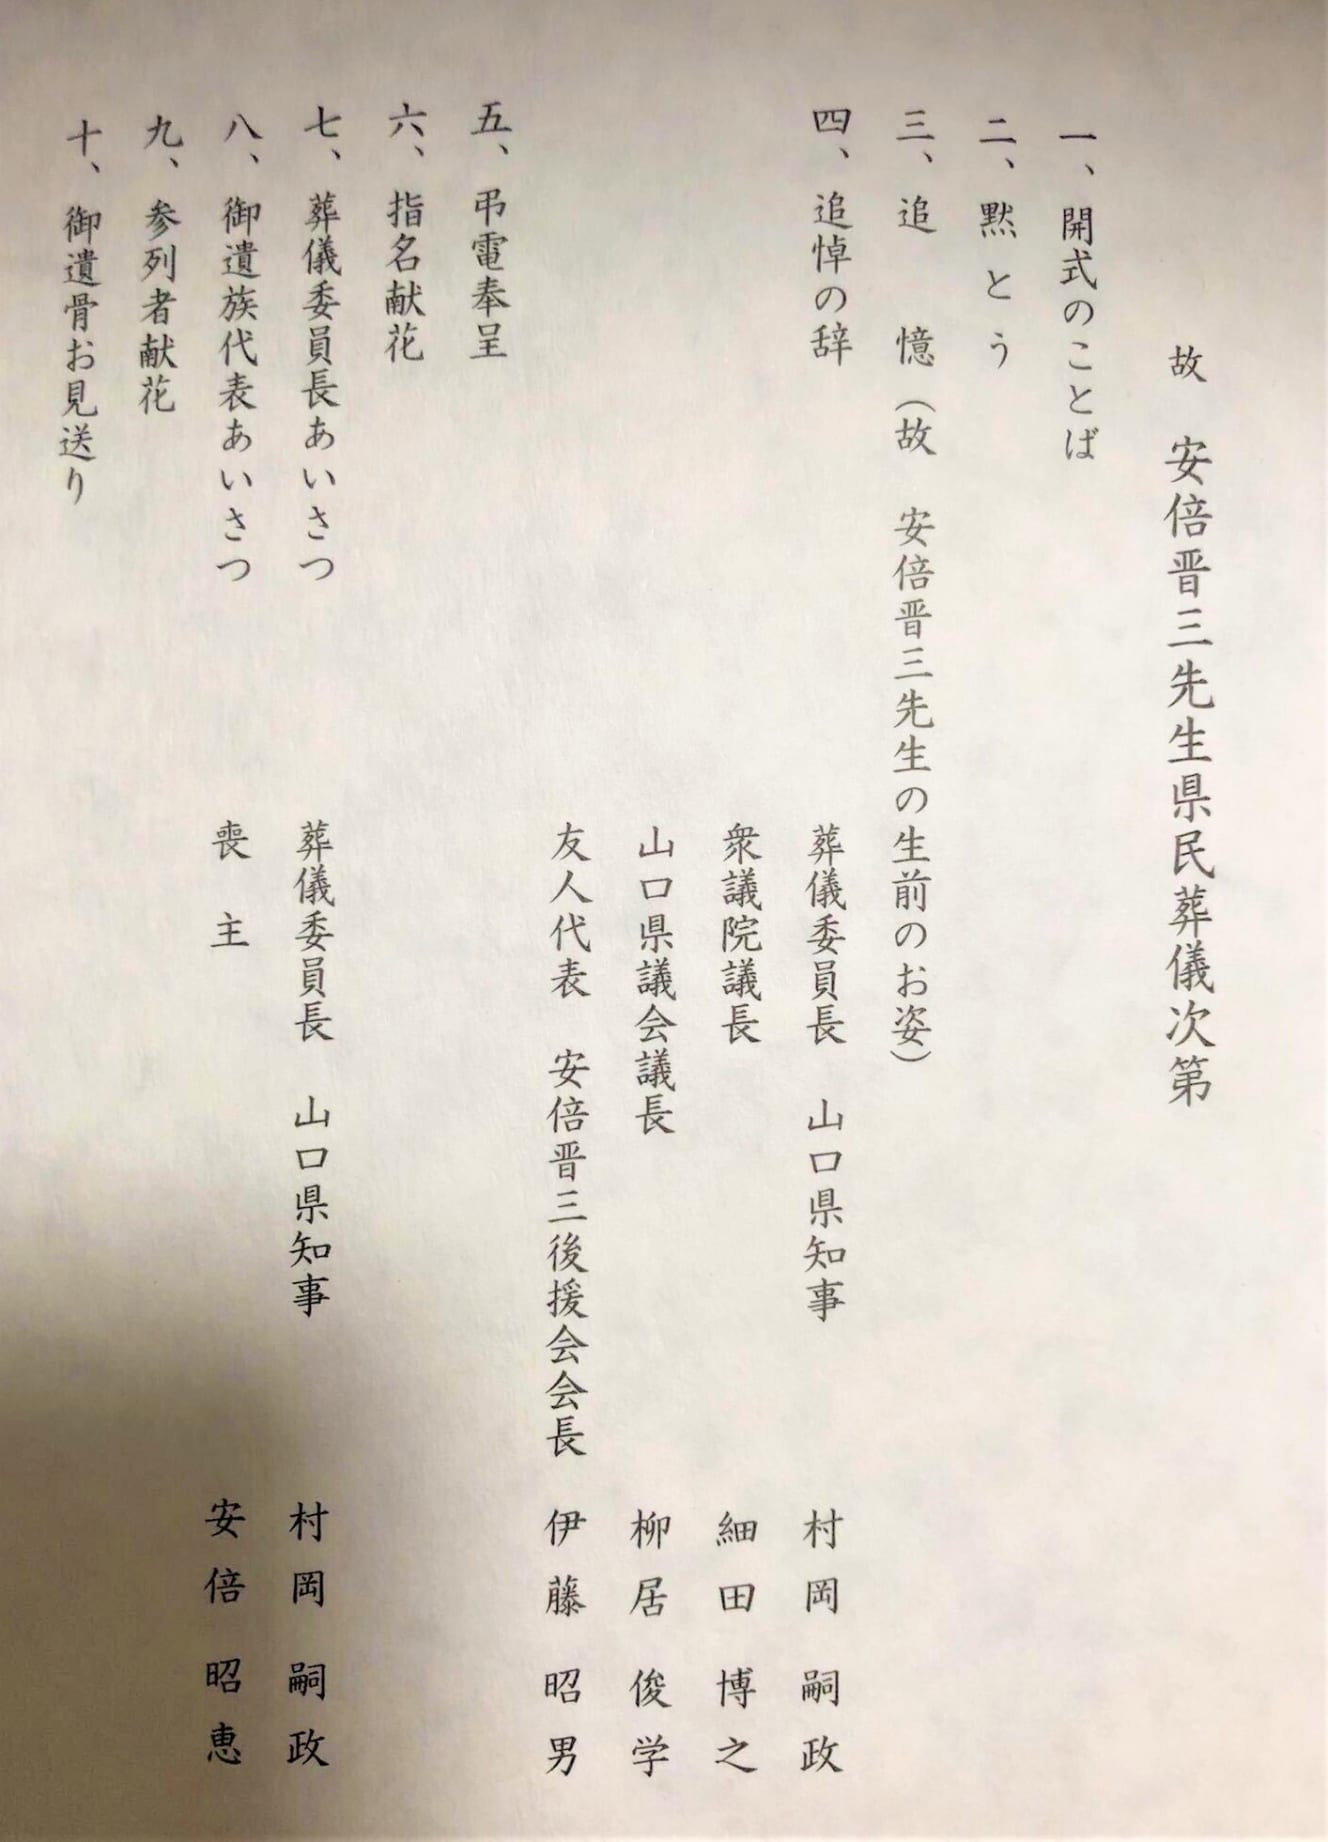 故　安倍晋三先生県民葬儀次第
一、開式のことば
二、黙とう
三、追　憶（故　安倍晋三先生の生前のお姿）
四、追悼の辞　葬儀委員長　山口県知事　村岡嗣政
衆議院議長　細田博之
山口県議会議長　柳居俊学
友人代表　安倍晋三後援会会長　伊藤昭男
五、弔電奉呈
六、指名献花
七、葬儀委員長あいさつ　葬儀委員長　山口県知事　村岡嗣政
八、御遺族代表あいさつ　喪主　安倍昭恵
九、参列者献花
十、御遺骨お見送り